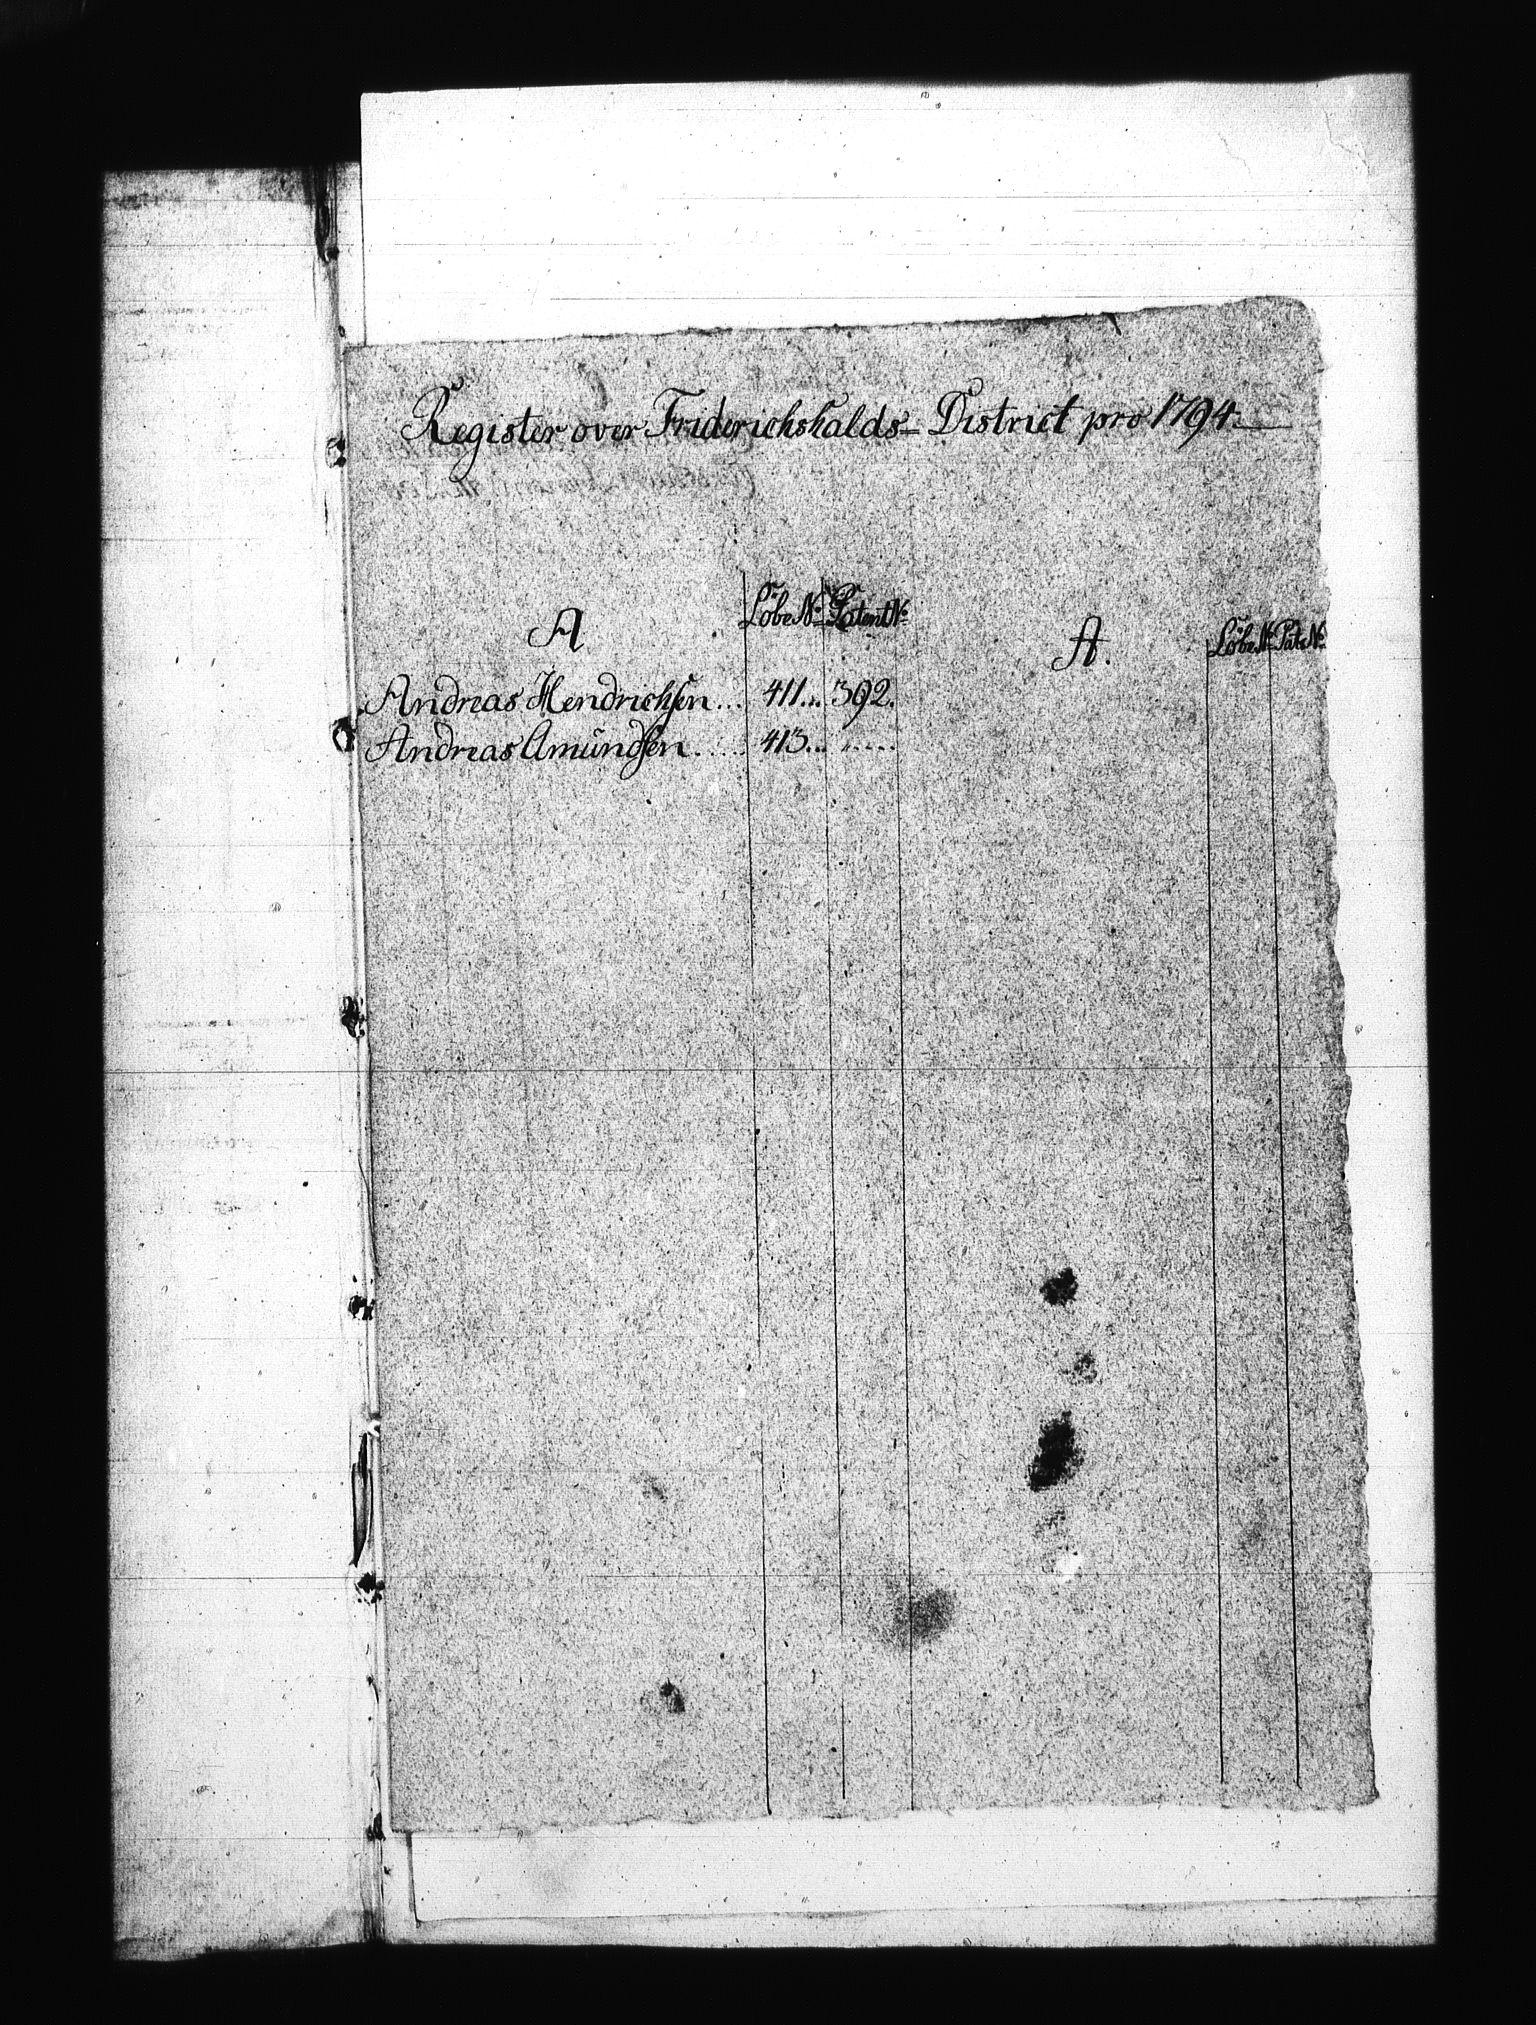 Register over Friderichshalds-District pro 1794.
A Löbe No Patent No
Andreas Hendrichsen... 411... 392.
Andreas Amundsen..... 413... .....
A. Löbe No Pat: No